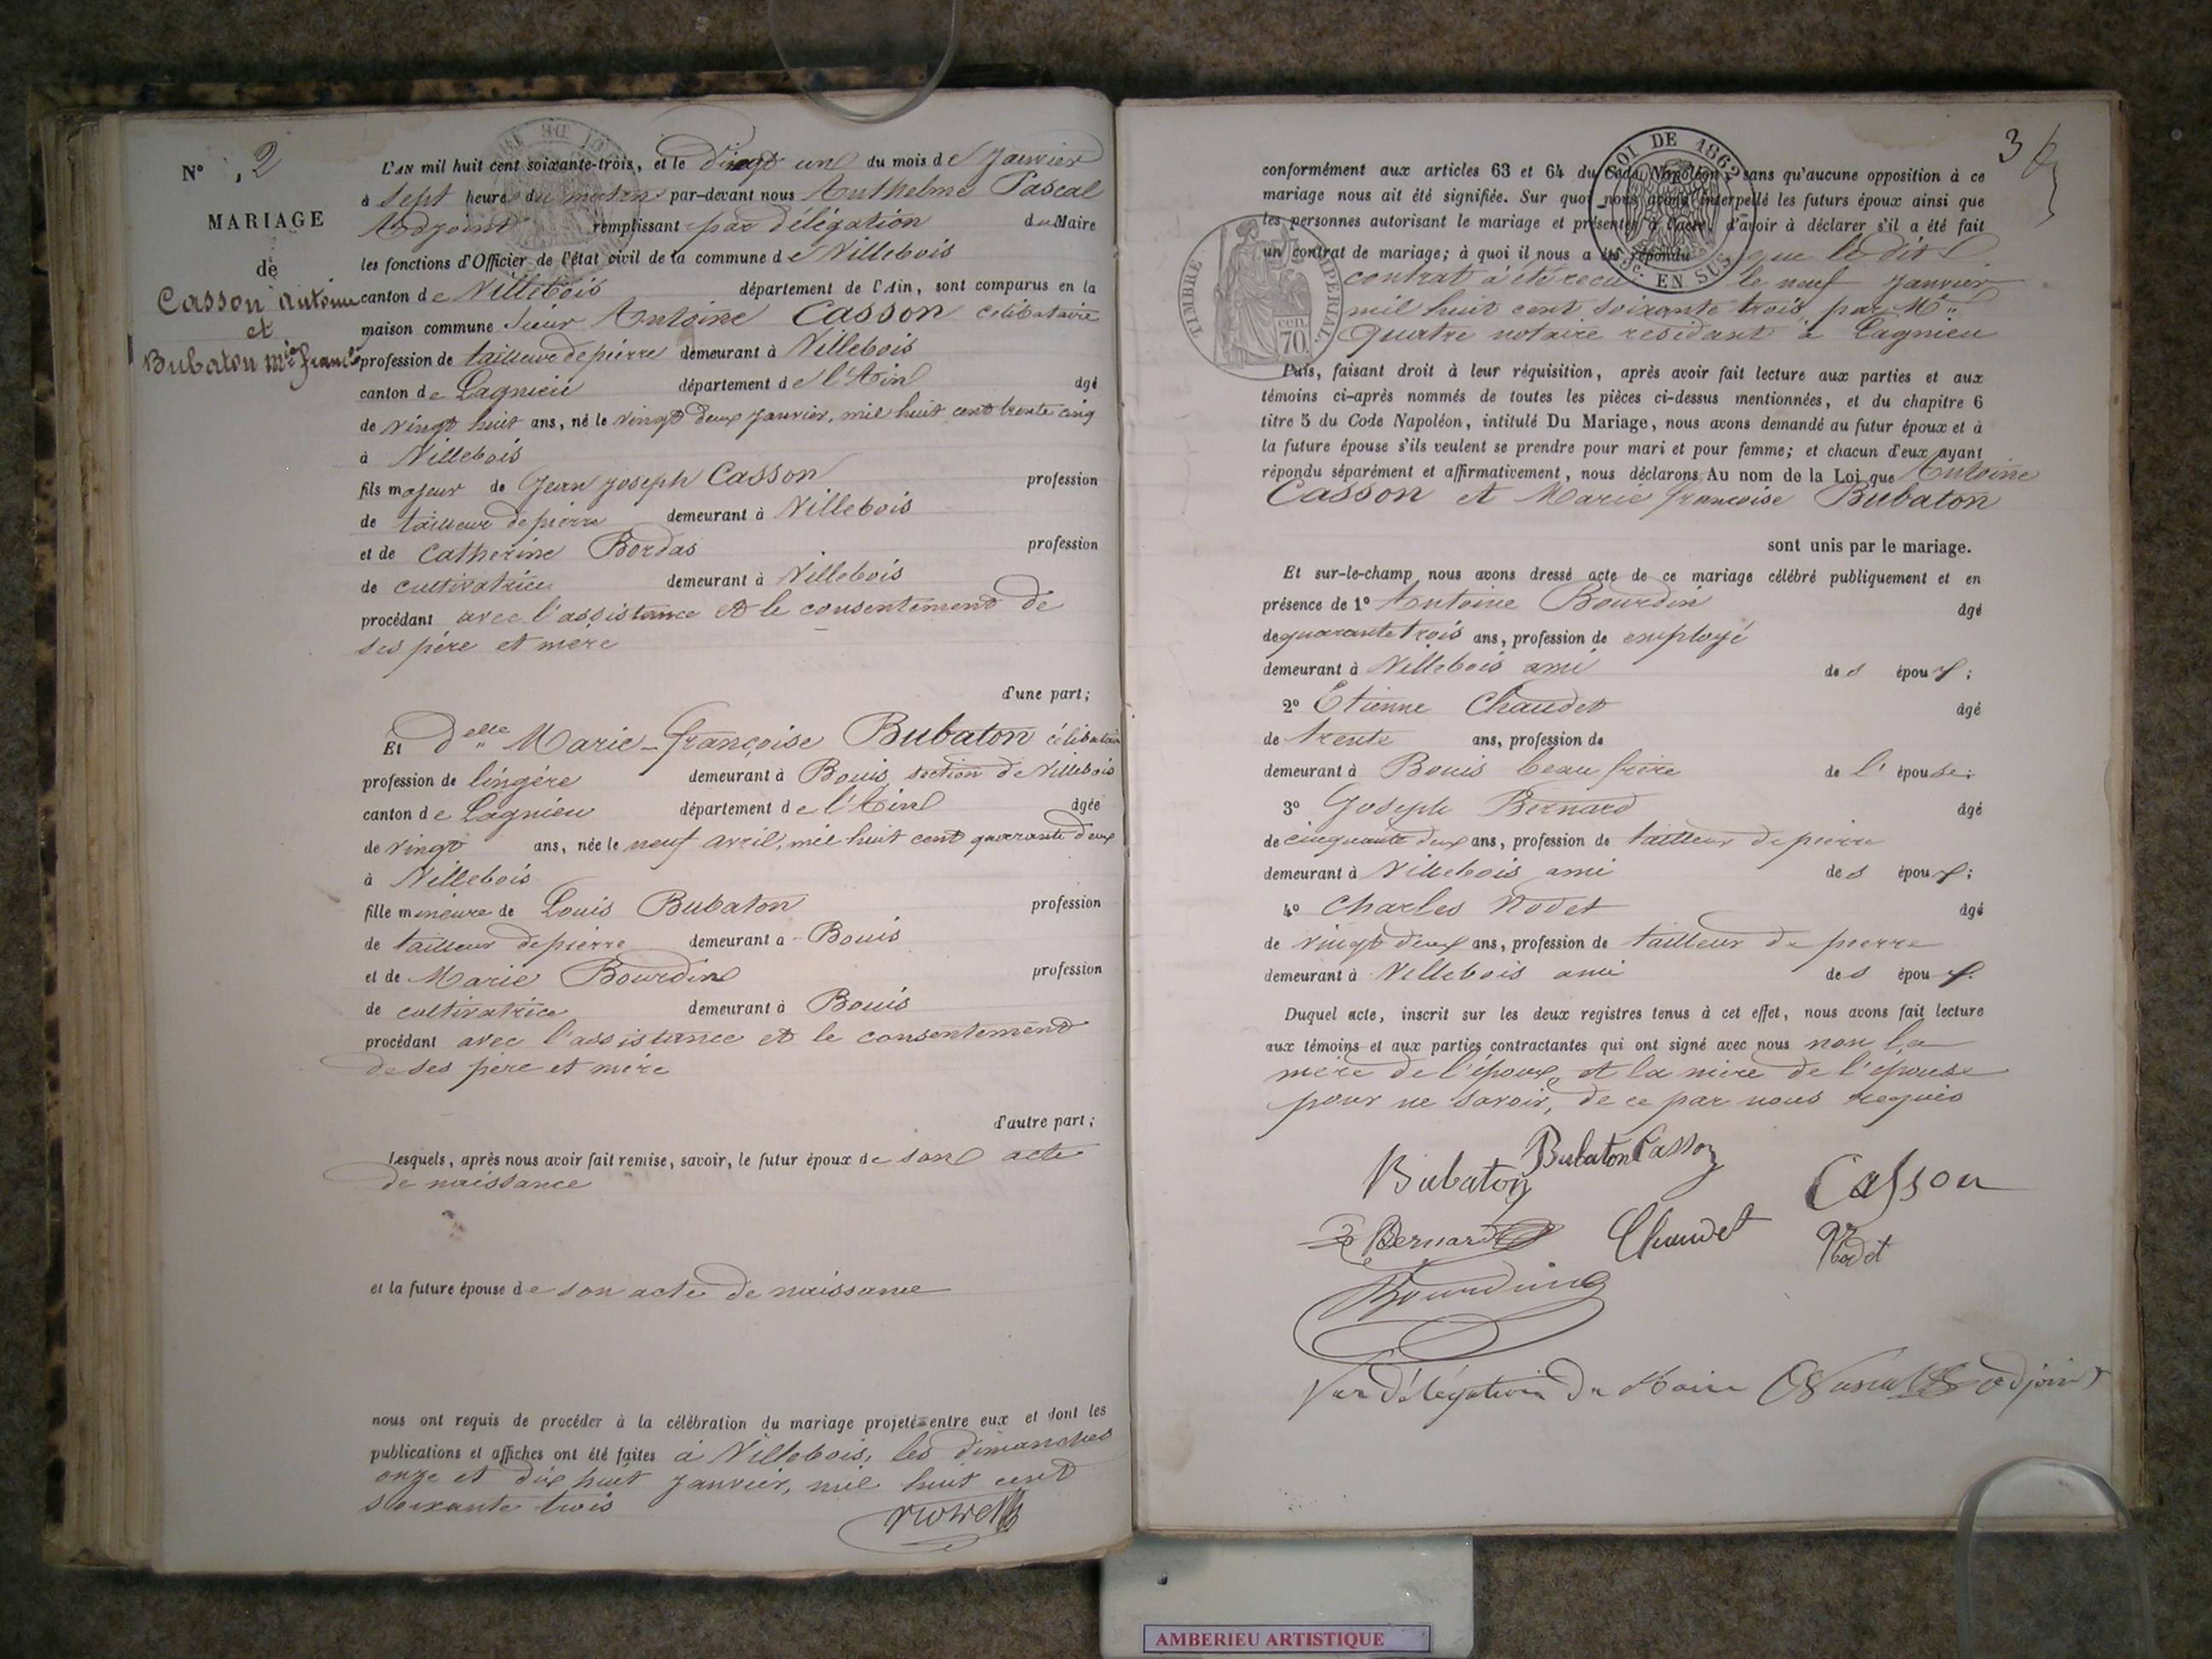 N° 2
MARIAGE
de
Casson antoine
et
Bubaton Mie Franc
L'AN mil huit cent soixante-trois, et le vingt un du mois de Janvier
à sept heure du matin par-devant nous Anthelme Pascal
Adjoint remplissant par délégation du Maire
les fonctions d'Officier de l'état civil de la commune de Villebois
canton de Villebois département de l'Ain, sont comparus en la
maison commune Sieur Antoine Casson célibataire
profession de tailleur de pierre demeurant à Villebois
canton de Lagnieu département de l'Ain âgé
de vingt huit ans, né le vingt deux Janvier, mil huit cent trente cinq
à Villebois
fils majeur de Jean Joseph Casson profession
de tailleur de pierre demeurant à Villebois
et de Catherine Bordas profession
de cultivatrice demeurant à Villebois
procédant avec l'assistance et le consentement de
ses père et mère
d'une part;
Et Delle Marie-Françoise Bubaton célibataire
profession de lingère demeurant à Bouis section de Villebois
canton de Lagnieu département de l'Ain âgée
de vingt ans, née le neuf avril, mil huit cent quarante deux
à Villebois
fille mineure de Louis Bubaton profession
de tailleur de pierre demeurant à Bouis
et de Marie Bourdin profession
de cultivatrice demeurant à Bouis
procédant avec l'assistance et le consentement
de ses père et mère
d'autre part;
Lesquels, après nous avoir fait remise, savoir, le futur époux de son acte
de naissance
et la future épouse de son acte de naissance
nous ont requis de procéder à la célébration du mariage projeté entre eux et dont les
publications et affiches ont été faites à Villebois, les dimanches
onze et dix huit Janvier, mil huit cent
soixante trois
3
conformément aux articles 63 et 64 du Code Napoléon, sans qu'aucune opposition à ce
mariage nous ait été signifiée. Sur quoi nous avons interpellé les futurs époux ainsi que
les personnes autorisant le mariage et présentes à l'acte, d'avoir à déclarer s'il a été fait
un contrat de mariage; à quoi il nous a été répondu que le dit
contrat à été recu le neuf Janvier
mil huit cent soixante trois, par Me
Quatre notaire residant à Lagnieu
Puis, faisant droit à leur réquisition, après avoir fait lecture aux parties et aux
témoins ci-après nommés de toutes les pièces ci-dessus mentionnées, et du chapitre 6
titre 5 du Code Napoléon, intitulé Du Mariage, nous avons demandé au futur époux et à
la future épouse s'ils veulent se prendre pour mari et pour femme; et chacun d'eux ayant
répondu séparément et affirmativement, nous déclarons Au nom de la Loi que Antoine
Casson et Marie françoise Bubaton
sont unis par le mariage.
Et sur-le-champ nous avons dressé acte de ce mariage célébré publiquement et en
présence de 1° Antoine Bourdin âgé
de quarante trois ans, profession de employé
demeurant à Villebois ami des époux;
2° Etienne Chaudet âgé
de trente ans, profession de
demeurant à Bouis beau frère de l'épouse;
3° Joseph Bernard âgé
de cinquante deux ans, profession de tailleur de pierre
demeurant à Villebois ami des époux;
4° Charles Nodet âgé
de vingt deux ans, profession de tailleur de pierre
demeurant à Villebois ami des époux.
Duquel acte, inscrit sur les deux registres tenus à cet effet, nous avons fait lecture
aux témoins et aux parties contractantes qui ont signé avec nous non la
mère de l'époux, et la mère de l'épouse
pour ne savoir, de ce par nous requis
Bubaton Bubaton Casson Casson
Bernard Chaudet Nodet
Bourdin
Par délégation du Maire Pascal adjoint
LOI DE 1862
EN SUS
TIMBRE IMPERIAL
cen.
70.
AMBERIEU ARTISTIQUE